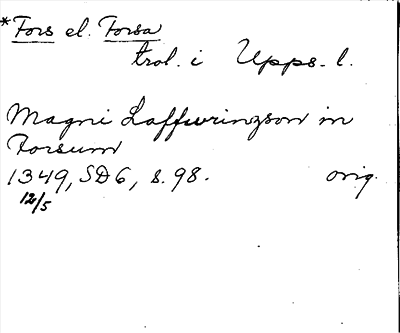 *Fors el. Forsa
trol. i Upps. l.
Magni Laffwrinzson in
Forsum
1349, SD6, s. 98. orig.
12/5